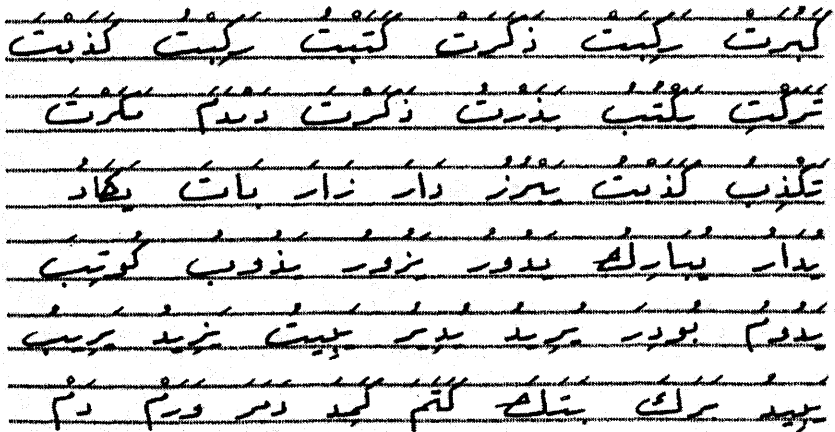 كَبُرَتْ رَكِبَتْ ذَكَرَتْ كَتَبْتُ رَكِبْتُ كَذَبْتَ
تَرَكْتِ يَكْتُبُ بَذَرْتُ ذَكَرْتَ مَكَرْتَ
تَكْذِبُ كَذَبْتُ يَبْرُزُ دَارَ زَارَ بَاتَ يَكَادُ
يُدَارُ يُبَارِكُ يَدُورُ يَزُورُ يَذُوبُ كُوتِبَ
يَدُومُ بُودِرَ يُرِيدُ يُدِيرُ يَبِيتُ يَزِيدُ يُرِيبُ
يَبِيدُ بَتَكَ كَتَمَ كَمَدَ دَمَرَ وَرَمْ دَمْ